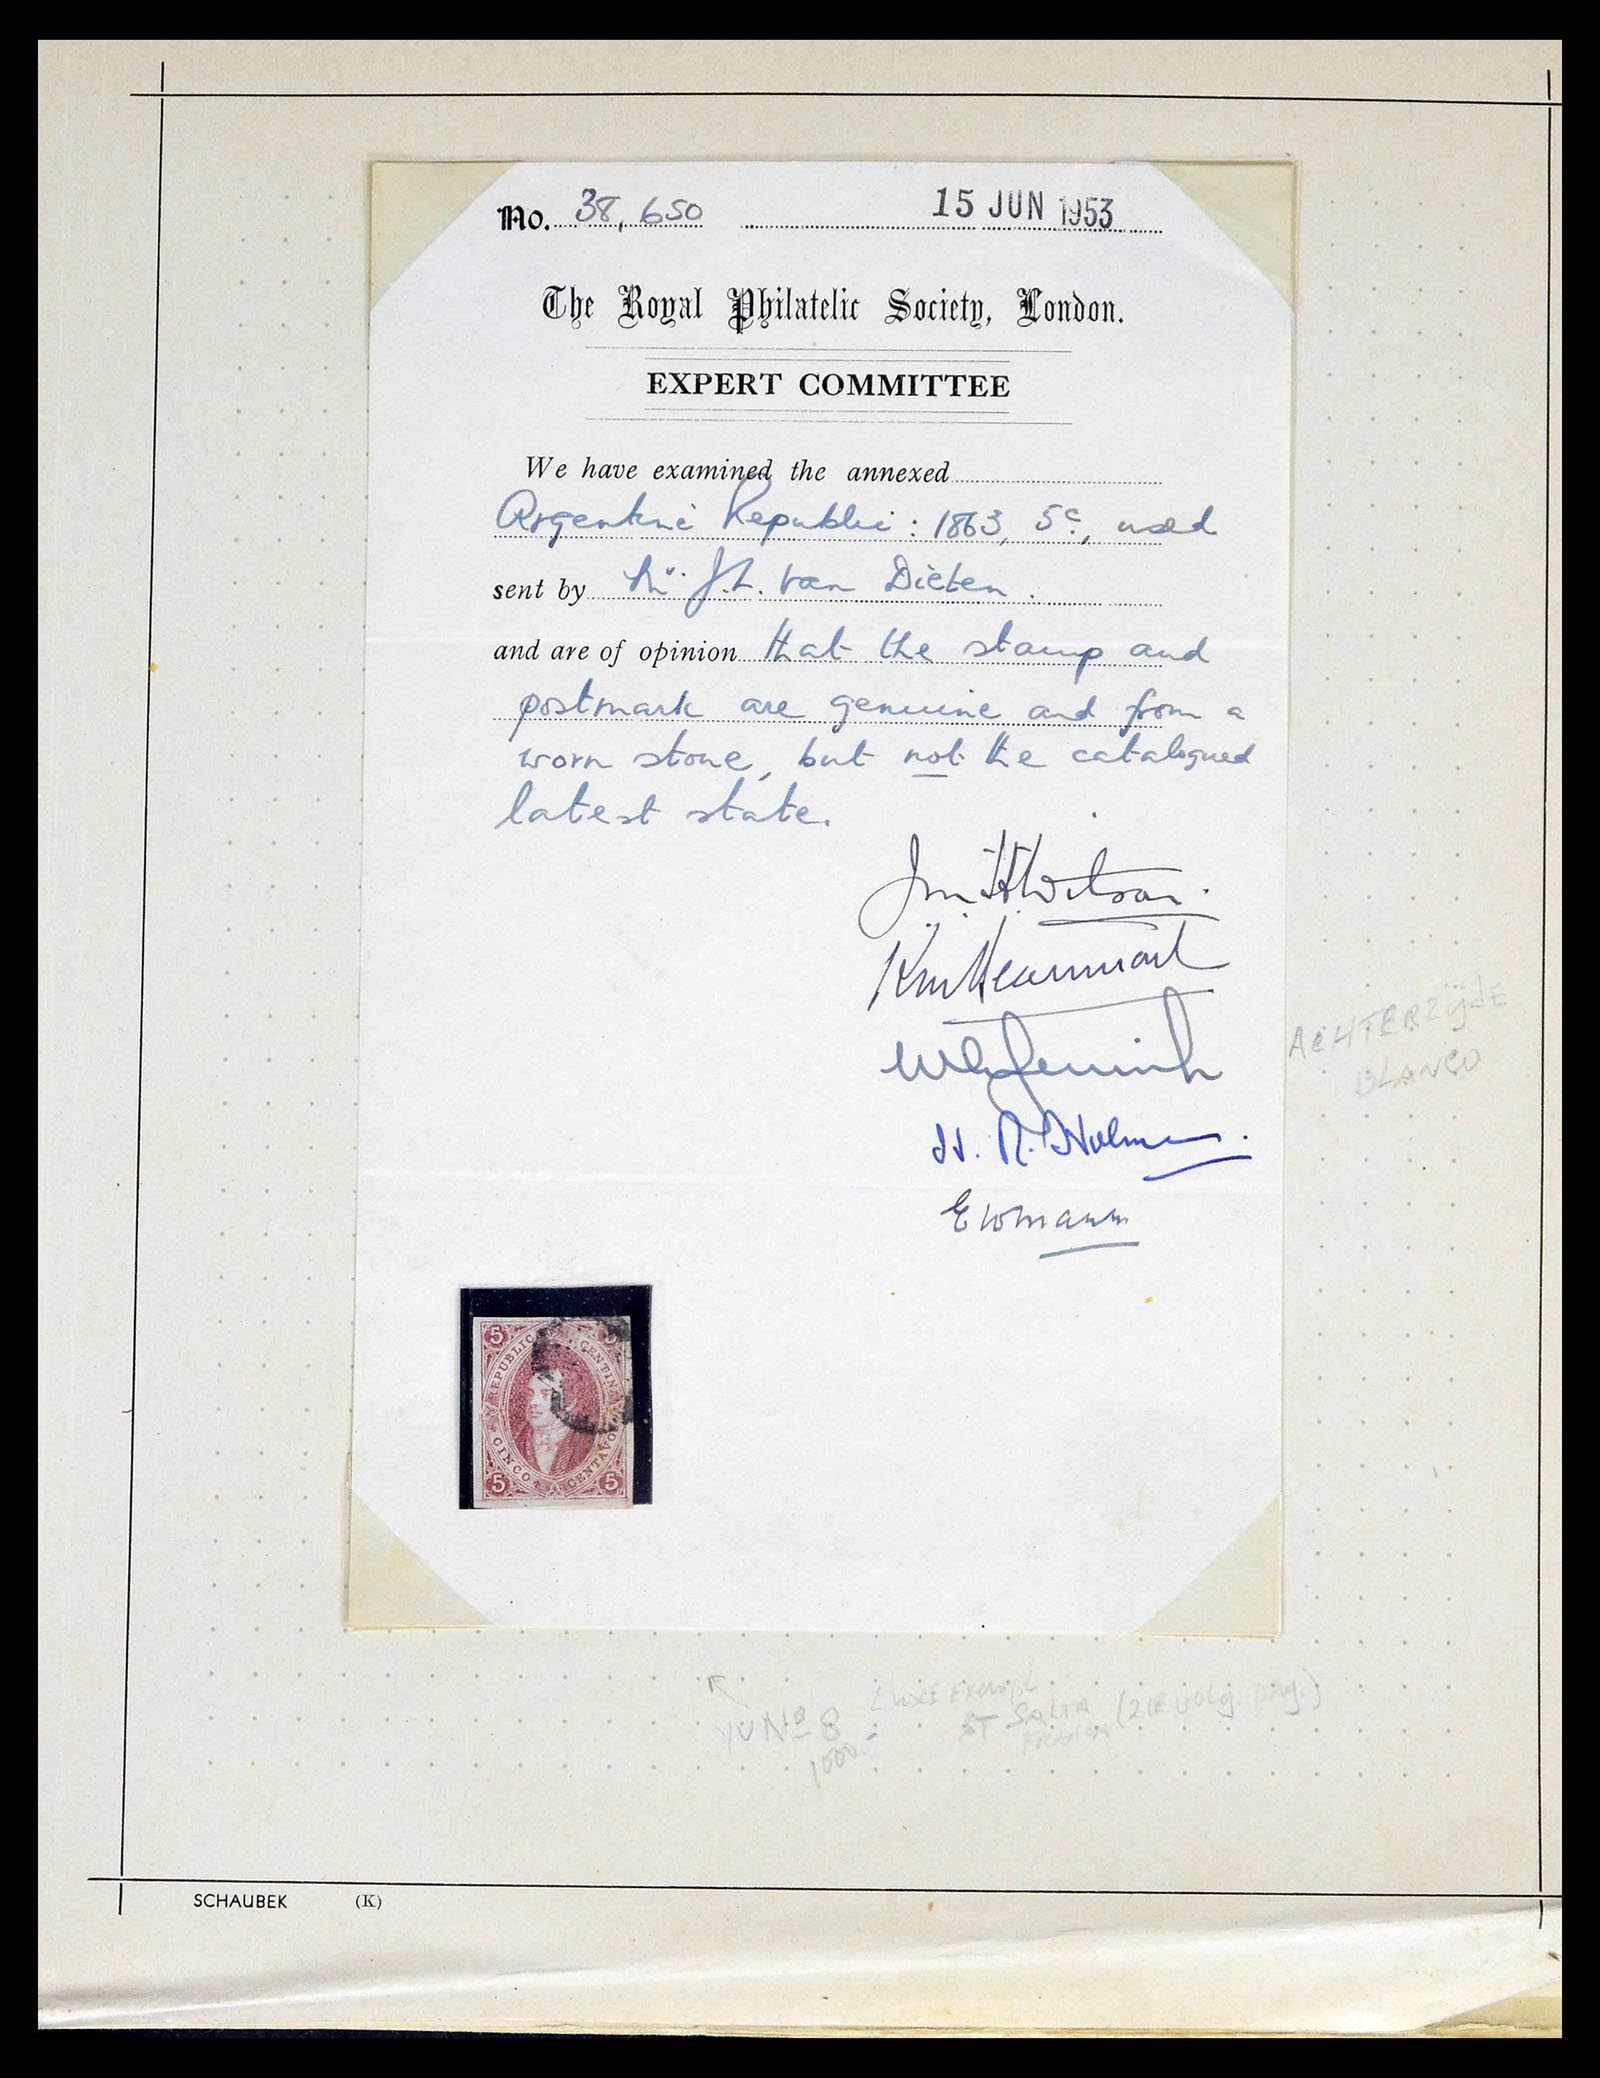 No. 38,650 15 JUN 1953
The Royal Philatelic Society, London.
EXPERT COMMITTEE
We have examined the annexed
Argentine Republic: 1863, 5c., used
sent by Mr. J.L. van Dieten.
and are of opinion that the stamp and
postmark are genuine and from a
worn stone, but not the catalogued
latest state.
ACHTERZIJDE
BLANCO
5 5
REPUBLICA ARGENTINA
CINCO CENTAVOS
5 5
YV No 8
1000.-
LUXE Exempl
ST SALTA
FRANCA
SCHAUBEK (K)